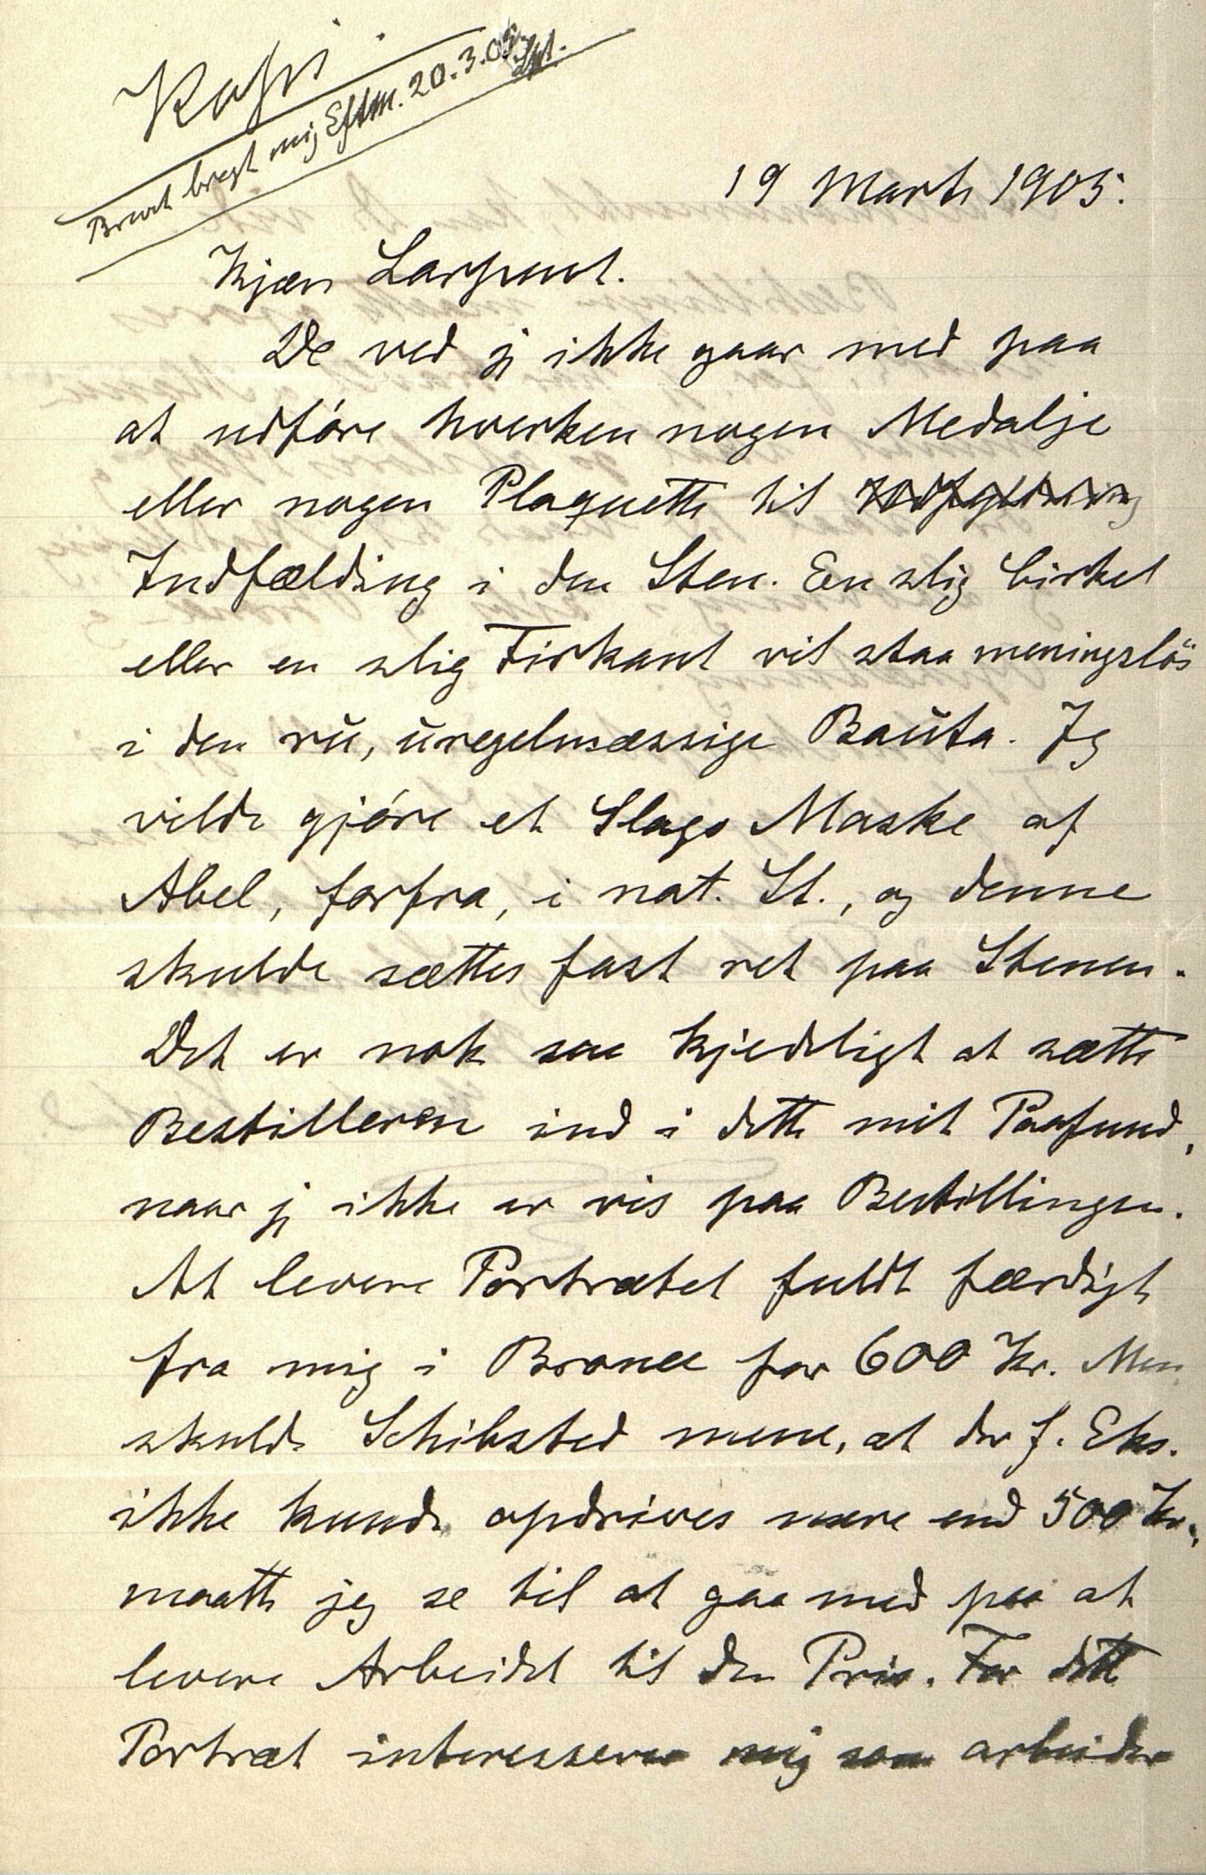 Kopi.
Brevet bragt mig Eftm. 20.3.05.
19 Marts 1905.
Kjære Larpent.
De ved jeg ikke gaar med paa
at udføre hverken nogen Medalje
eller nogen Plaquette til
Indfælding i den Sten. En slig Cirkel
eller en slig Firkant vil staa meningsløs
i den ru, uregelmæssige Bauta. Jeg
vilde gjøre et Slags Maske af
Abel, forfra, i nat. St., og denne
skulde sættes fast ret paa Stenen.
Det er nok saa kjedeligt at sætte
Bestilleren ind i dette mit Paafund,
naar jeg ikke er vis paa Bestillingen.
At levere Portrætet fuldt færdigt
fra mig i Bronce for 600 Kr. Men
skulde Schibsted mene, at der f. Eks.
ikke kunde opdrives mere end 500 Kr.,
maatte jeg se til at gaa med paa at
levere Arbeidet til den Pris. For dette
Portræt interesserer mig som arbeider